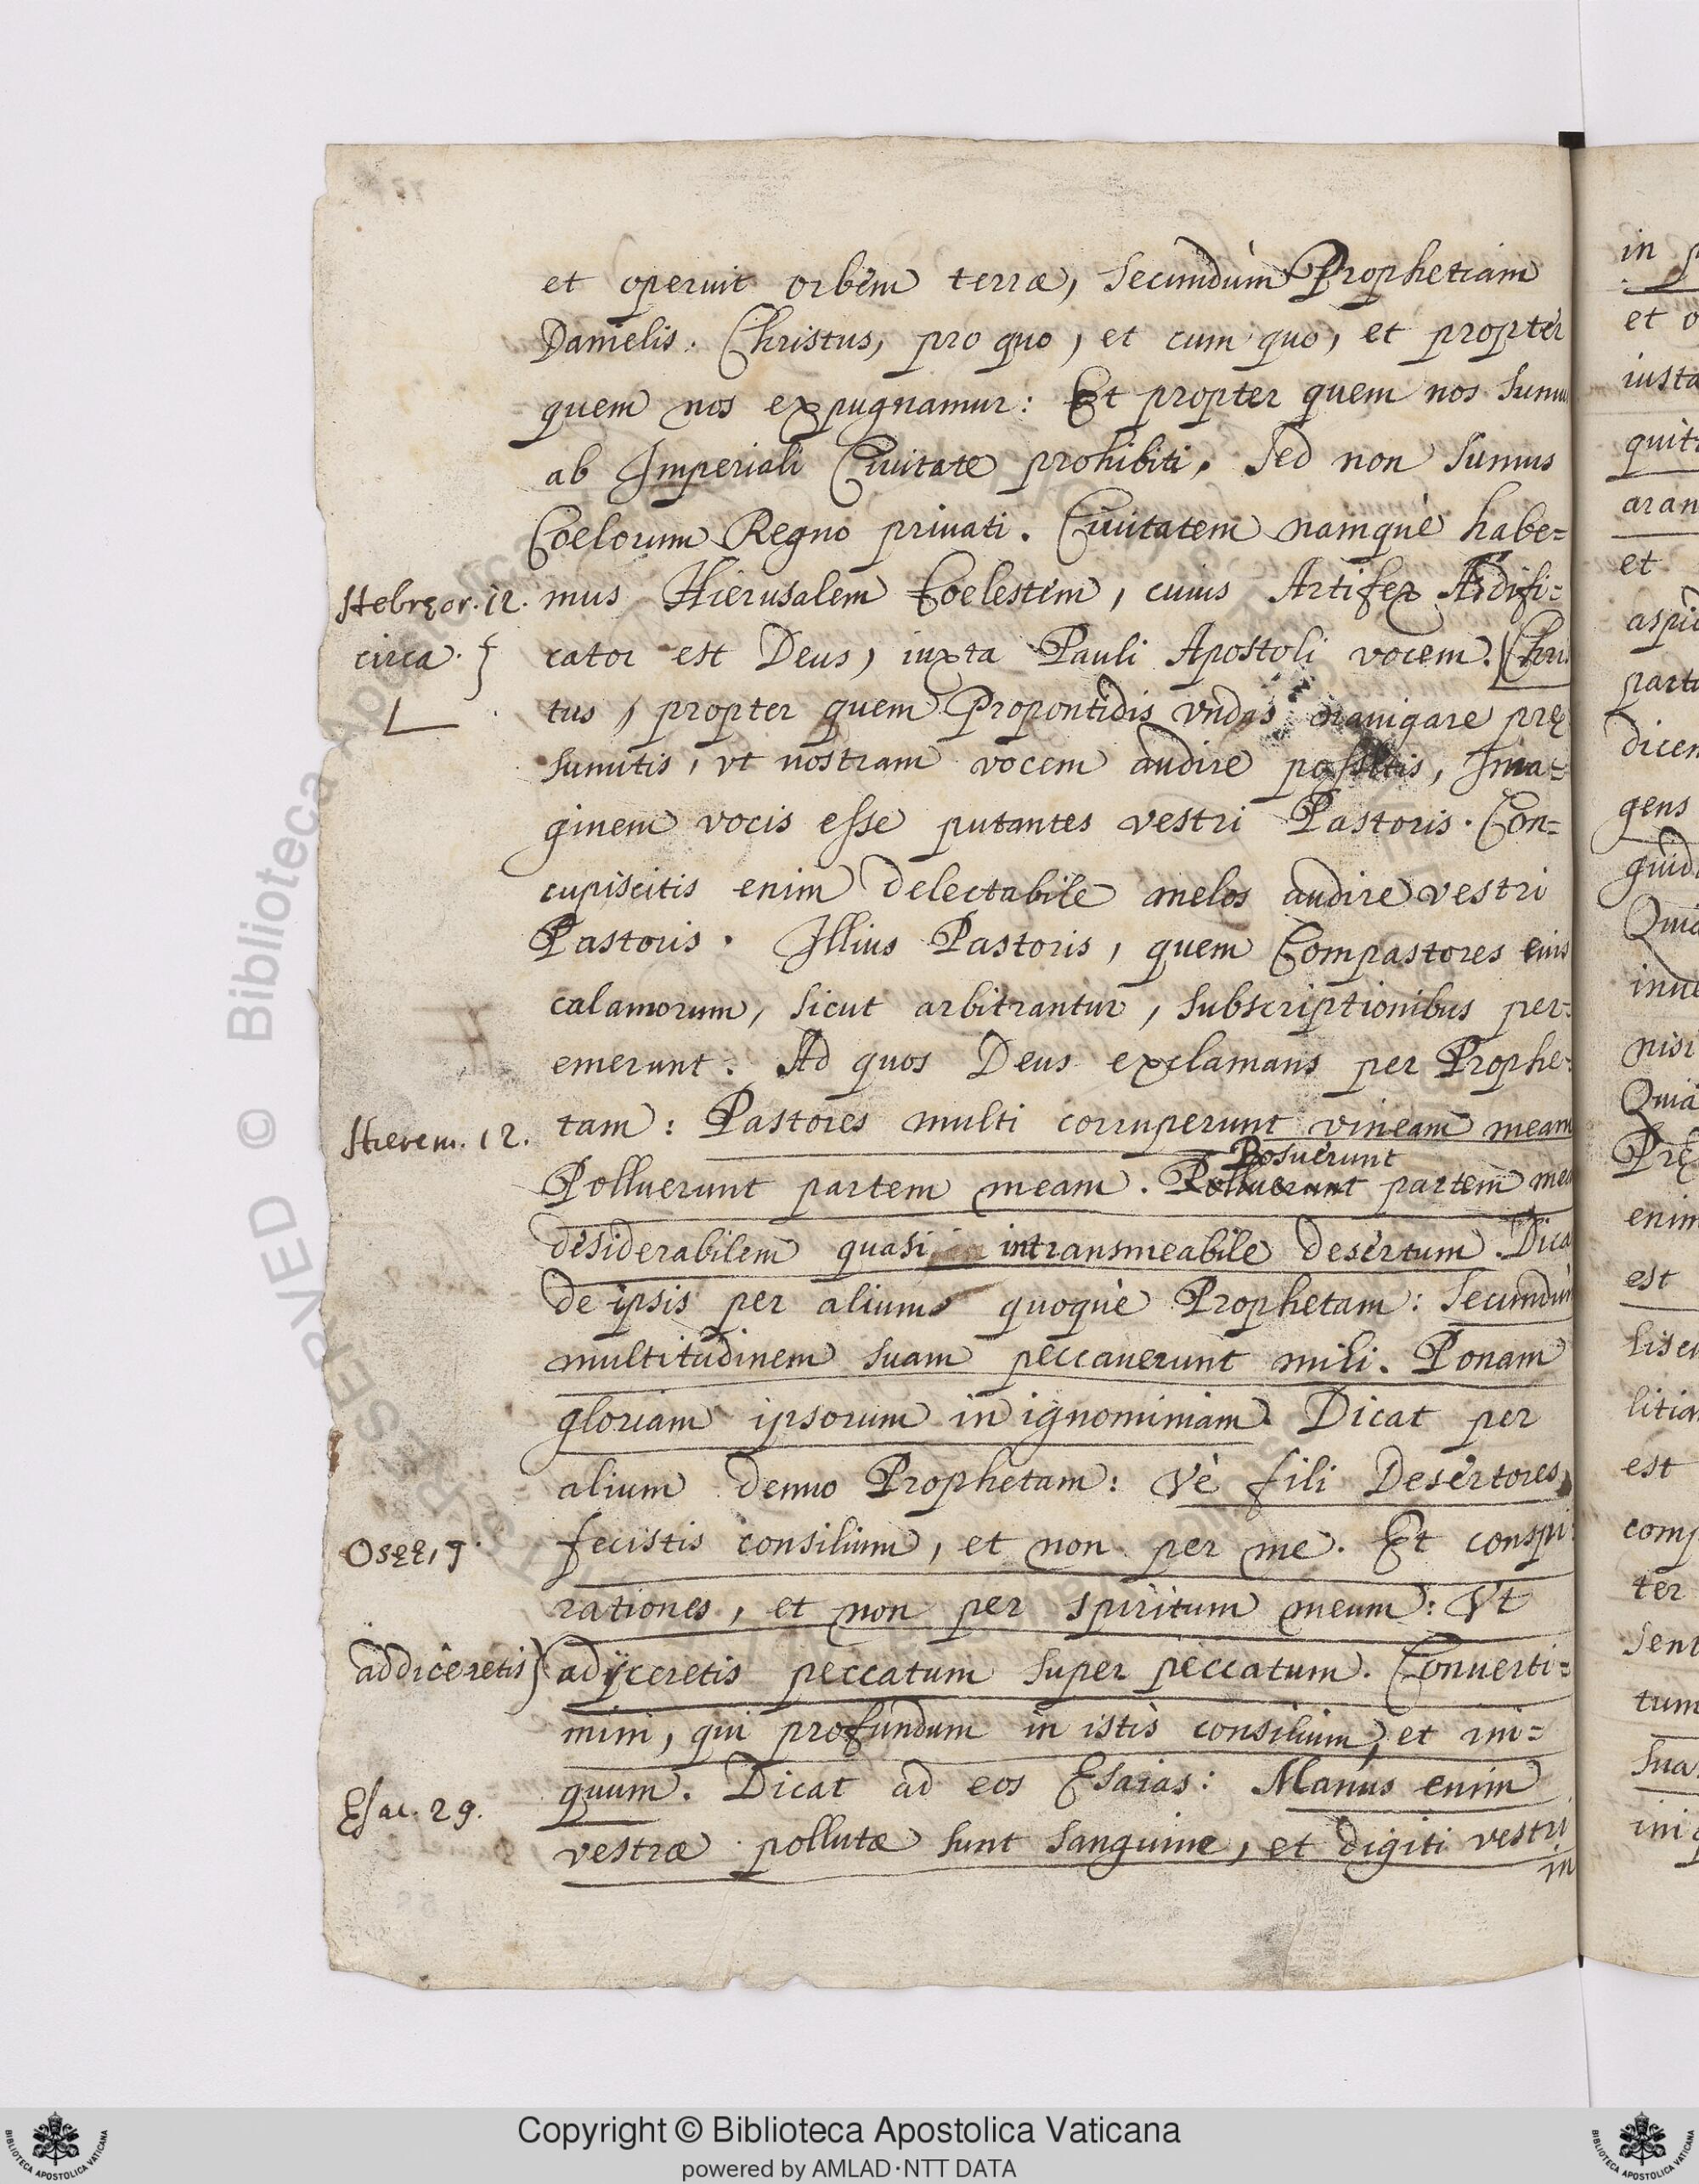 et operuit orbem terræ, secundùm Prophetiam
Danielis. Christus, pro quo, et cum quo, et propter
quem nos expugnamur: Et propter quem nos sumus
ab Imperiali Ciuitate prohibiti, sed non sumus
Coelorum Regno priuati. Ciuitatem namquè habe=
Hebręor. 12. mus Hierusalem Coelestem, cuius Artifex Ædifi=
circa. cator est Deus, iuxta Pauli Apostoli vocem. Chris
tus, propter quem Propontidis vndas nauigare prę
sumitis, vt nostram vocem audire possitis, Ima=
ginem vocis esse putantes vestri Pastoris. Con=
cupiscitis enim delectabile melos audire vestri
Pastoris. Illius Pastoris, quem Compastores eius
calamorum, sicut arbitrantur, subscriptionibus per=
emerunt. Ad quos Deus exclamans per Prophe=
Hierem. 12. tam: Pastores multi corruperunt vineam meam
Posuerunt
Polluerunt partem meam. Polluerunt partem mea
desiderabilem quasi intransmeabile desertum. Dica
de ipsis per alium quoquè Prophetam: Secundùm
multitudinem suam peccauerunt mihi. Ponam
gloriam ipsorum in ignominiam. Dicat per
alium denuo Prophetam: Vè fili Desertores,
Oseę, fecistis consilium, et non per me. Et conspi=
rationes, et non per spiritum meum: Vt
addiceretis) adijceretis peccatum super peccatum. Conuerti=
mini, qui profundum in istis consilium, et ini=
quum. Dicat ad eos Esaias: Manus enim
Esai. 29. vestræ pollutæ sunt sanguine, et digiti vestri
in
in p
et o
iusta
quit
aran
et
aspid
parti
dicen
gens
quid
Quia
inue
nisi
Quia
Prę
enim
est
lisci
litia
est
comp
ter
sent
tum
sua
iniq
Copyright © Biblioteca Apostolica Vaticana
powered by AMLAD·NTT DATA
BIBLIOTECA APOSTOLICA VATICANA
BIBLIOTECA APOSTOLICA VATICANA